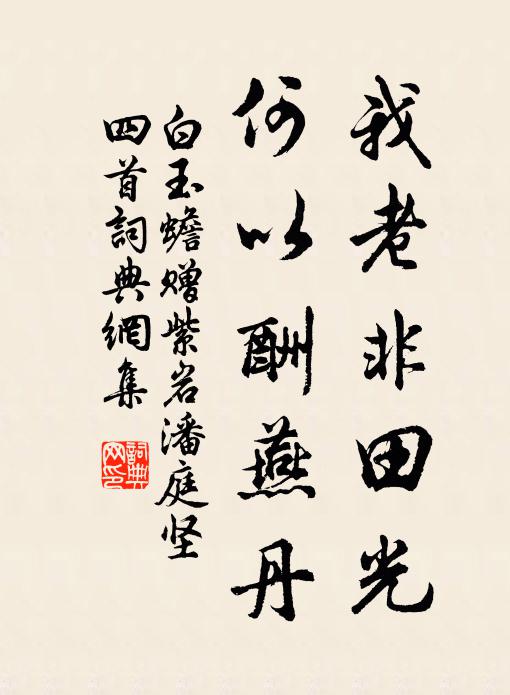 我老非田光
何以酬燕丹
白玉蟾赠紫岩潘庭坚
四首詞典網集
詞典
网印